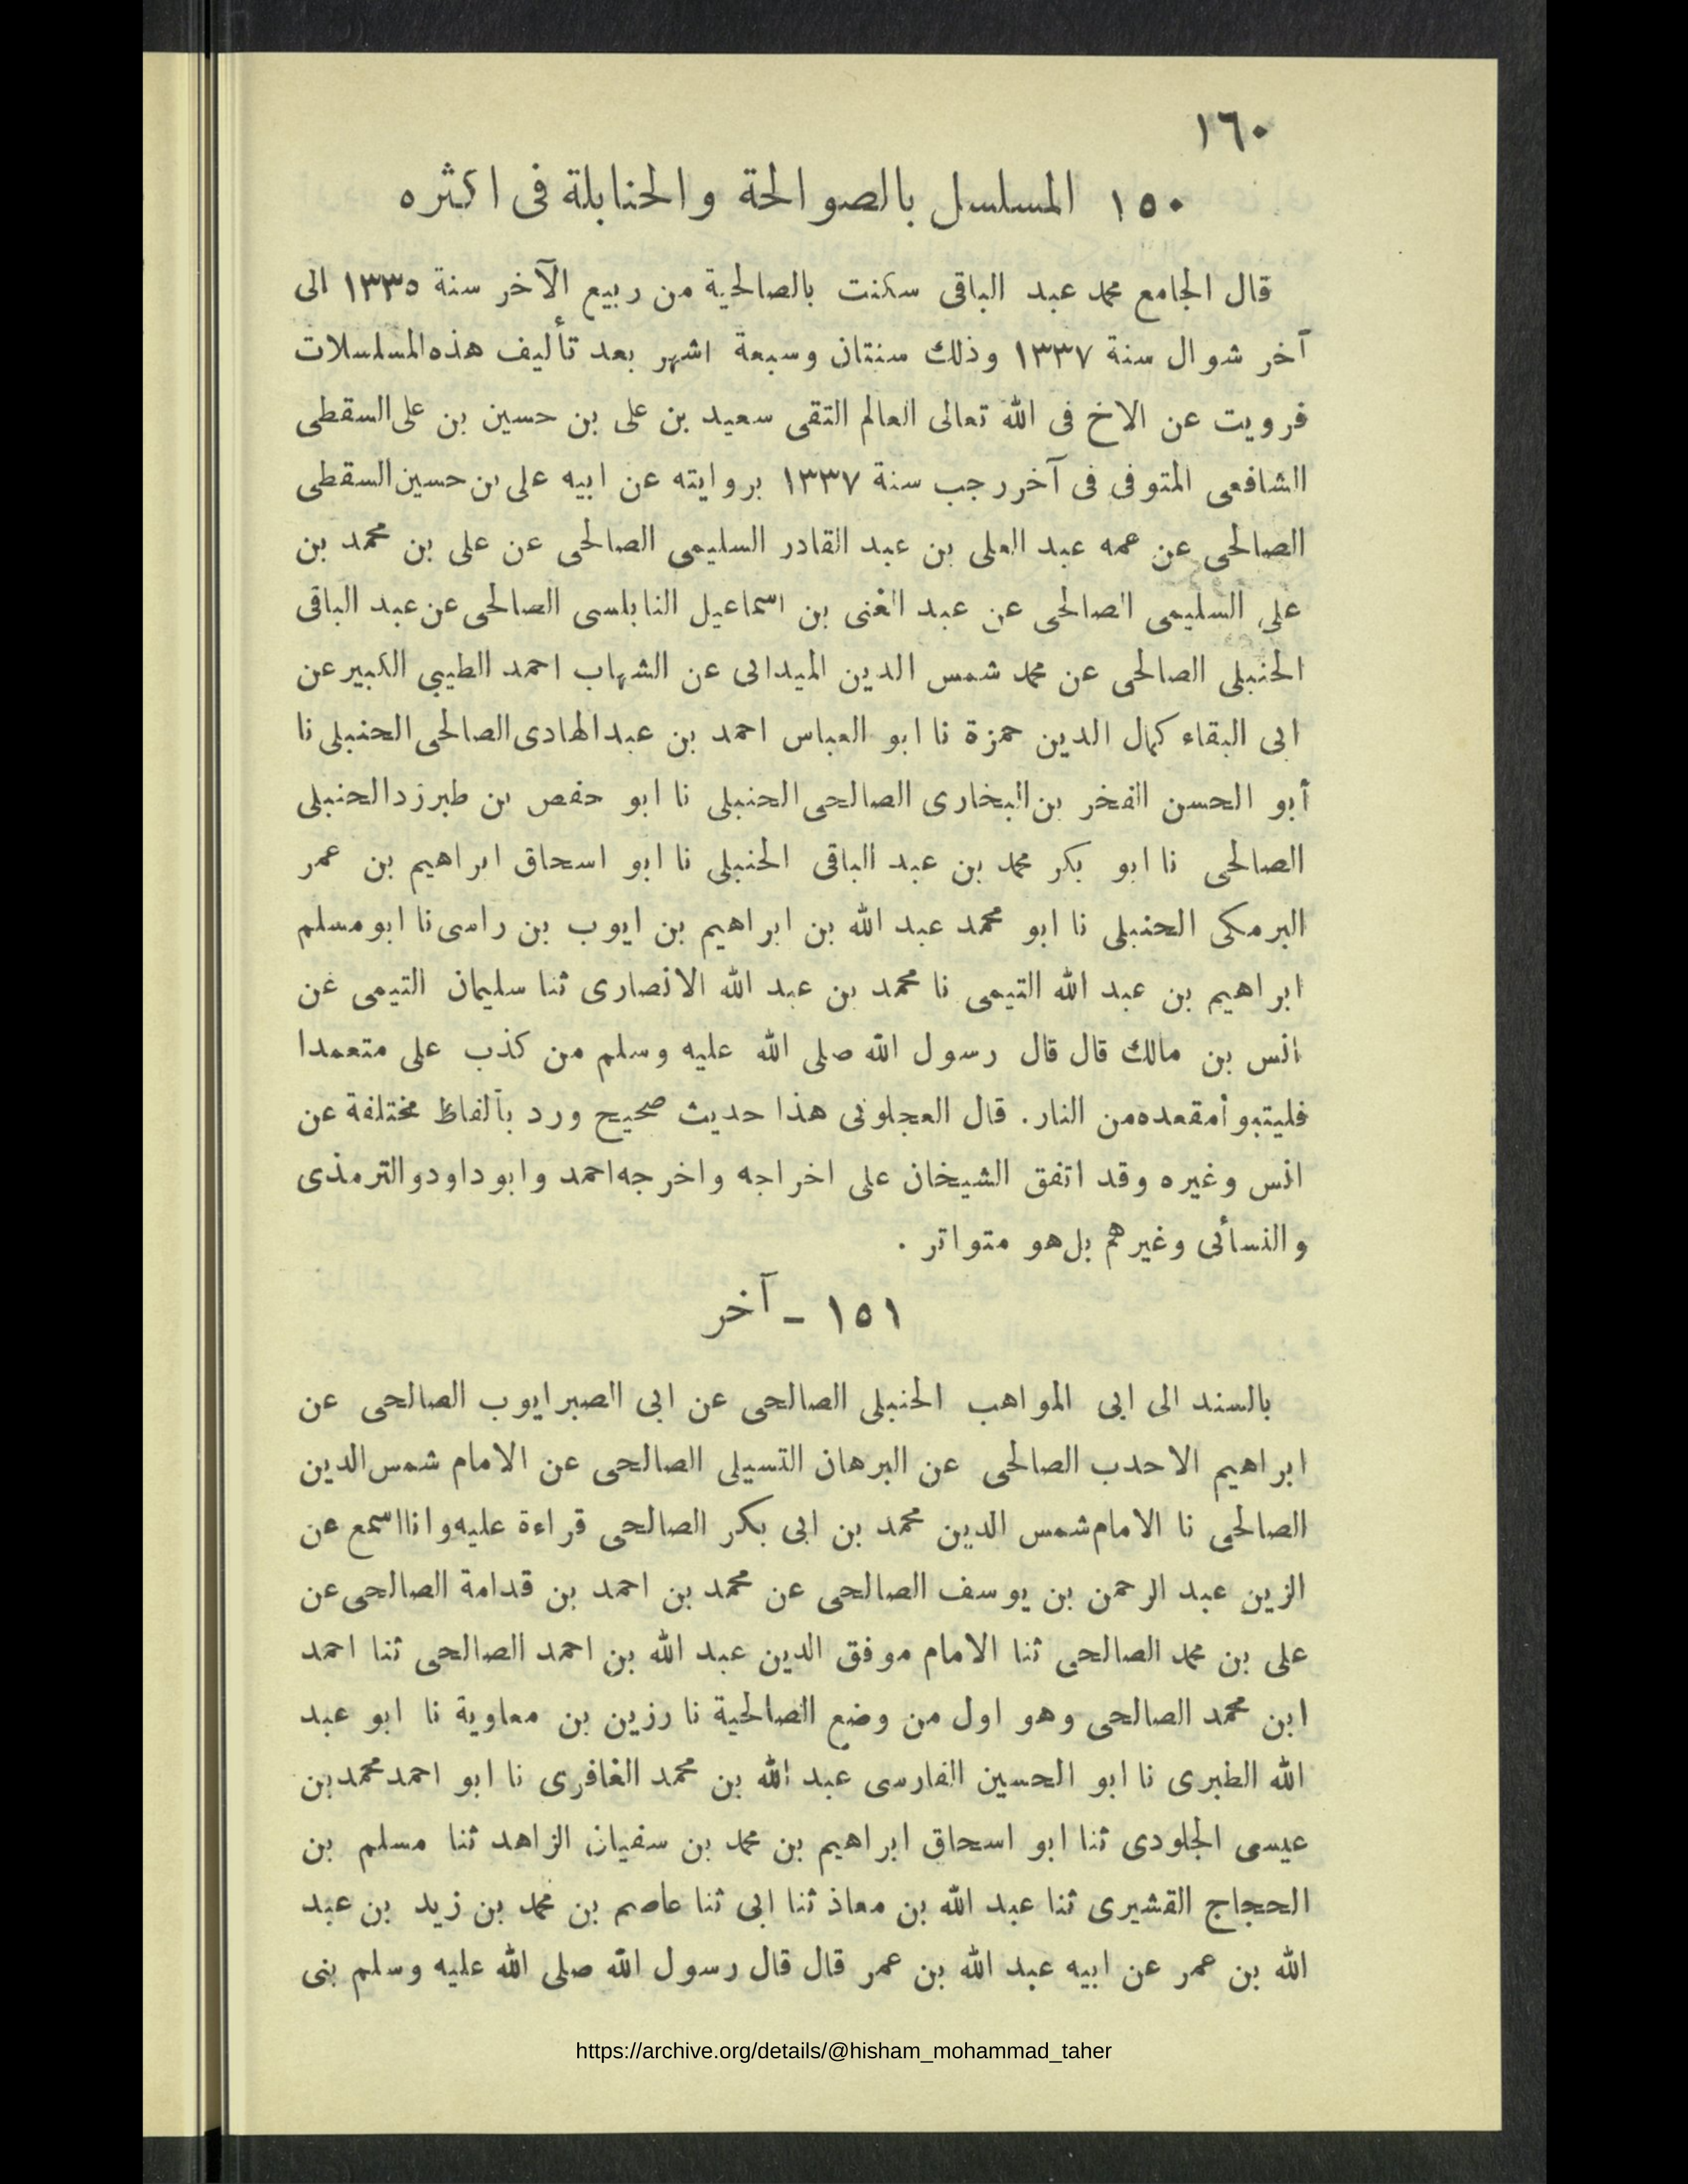 ١٦٠
١٥٠ المسلسل بالصوالحة والحنابلة فى اكثره
قال الجامع محمد عبد الباقى سكنت بالصالحية من ربيع الآخر سنة ١٣٣٥ الى
آخر شوال سنة ١٣٣٧ وذلك سنتان وسبعة اشهر بعد تأليف هذه المسلسلات
فرويت عن الاخ فى الله تعالى العالم التقى سعيد بن على بن حسين بن على السقطى
الشافعى المتوفى فى آخر رجب سنة ١٣٣٧ بروايته عن ابيه على بن حسين السقطى
الصالحى عن عمه عبد العلى بن عبد القادر السليمى الصالحى عن على بن محمد بن
على السليمى الصالحى عن عبد الغنى بن اسماعيل النابلسى الصالحى عن عبد الباقى
الحنبلى الصالحى عن محمد شمس الدين الميدانى عن الشهاب احمد الطيبى الكبير عن
ابى البقاء كمال الدين حمزة نا ابو العباس احمد بن عبد الهادى الصالحى الحنبلى نا
أبو الحسن الفخر بن البخارى الصالحى الحنبلى نا ابو حفص بن طبرزد الحنبلى
الصالحى نا ابو بكر محمد بن عبد الباقى الحنبلى نا ابو اسحاق ابراهيم بن عمر
البرمكى الحنبلى نا ابو محمد عبد الله بن ابراهيم بن ايوب بن راسى نا ابو مسلم
ابراهيم بن عبد الله التيمى نا محمد بن عبد الله الانصارى ثنا سليمان التيمى عن
انس بن مالك قال قال رسول الله صلى الله عليه وسلم من كذب على متعمدا
فليتبوأ مقعده من النار. قال العجلونى هذا حديث صحيح ورد بألفاظ مختلفة عن
انس وغيره وقد اتفق الشيخان على اخراجه واخرجه احمد وابو داود والترمذى
والنسأنى وغيرهم بل هو متواتر .
١٥١ ـ آخر
بالسند الى ابى المواهب الحنبلى الصالحى عن ابى الصبر ايوب الصالحى عن
ابراهيم الاحدب الصالحى عن البرهان التسيلى الصالحى عن الامام شمس الدين
الصالحى نا الامام شمس الدين محمد بن ابى بكر الصالحى قراءة عليه وانا اسمع عن
الزين عبد الرحمن بن يوسف الصالحى عن محمد بن احمد بن قدامة الصالحى عن
على بن محمد الصالحى ثنا الامام موفق الدين عبد الله بن احمد الصالحى ثنا احمد
ابن محمد الصالحى وهو اول من وضع الصالحية نا رزين بن معاوية نا ابو عبد
الله الطبرى نا ابو الحسين الفارسى عبد الله بن محمد الغافرى نا ابو احمد محمد بن
عيسى الجلودى ثنا ابو اسحاق ابراهيم بن محمد بن سفيان الزاهد ثنا مسلم بن
الحجاج القشيرى ثنا عبد الله بن معاذ ثنا ابى ثنا عاصم بن محمد بن زيد بن عبد
الله بن عمر عن ابيه عبد الله بن عمر قال قال رسول الله صلى الله عليه وسلم بنى
https://archive.org/details/@hisham_mohammad_taher